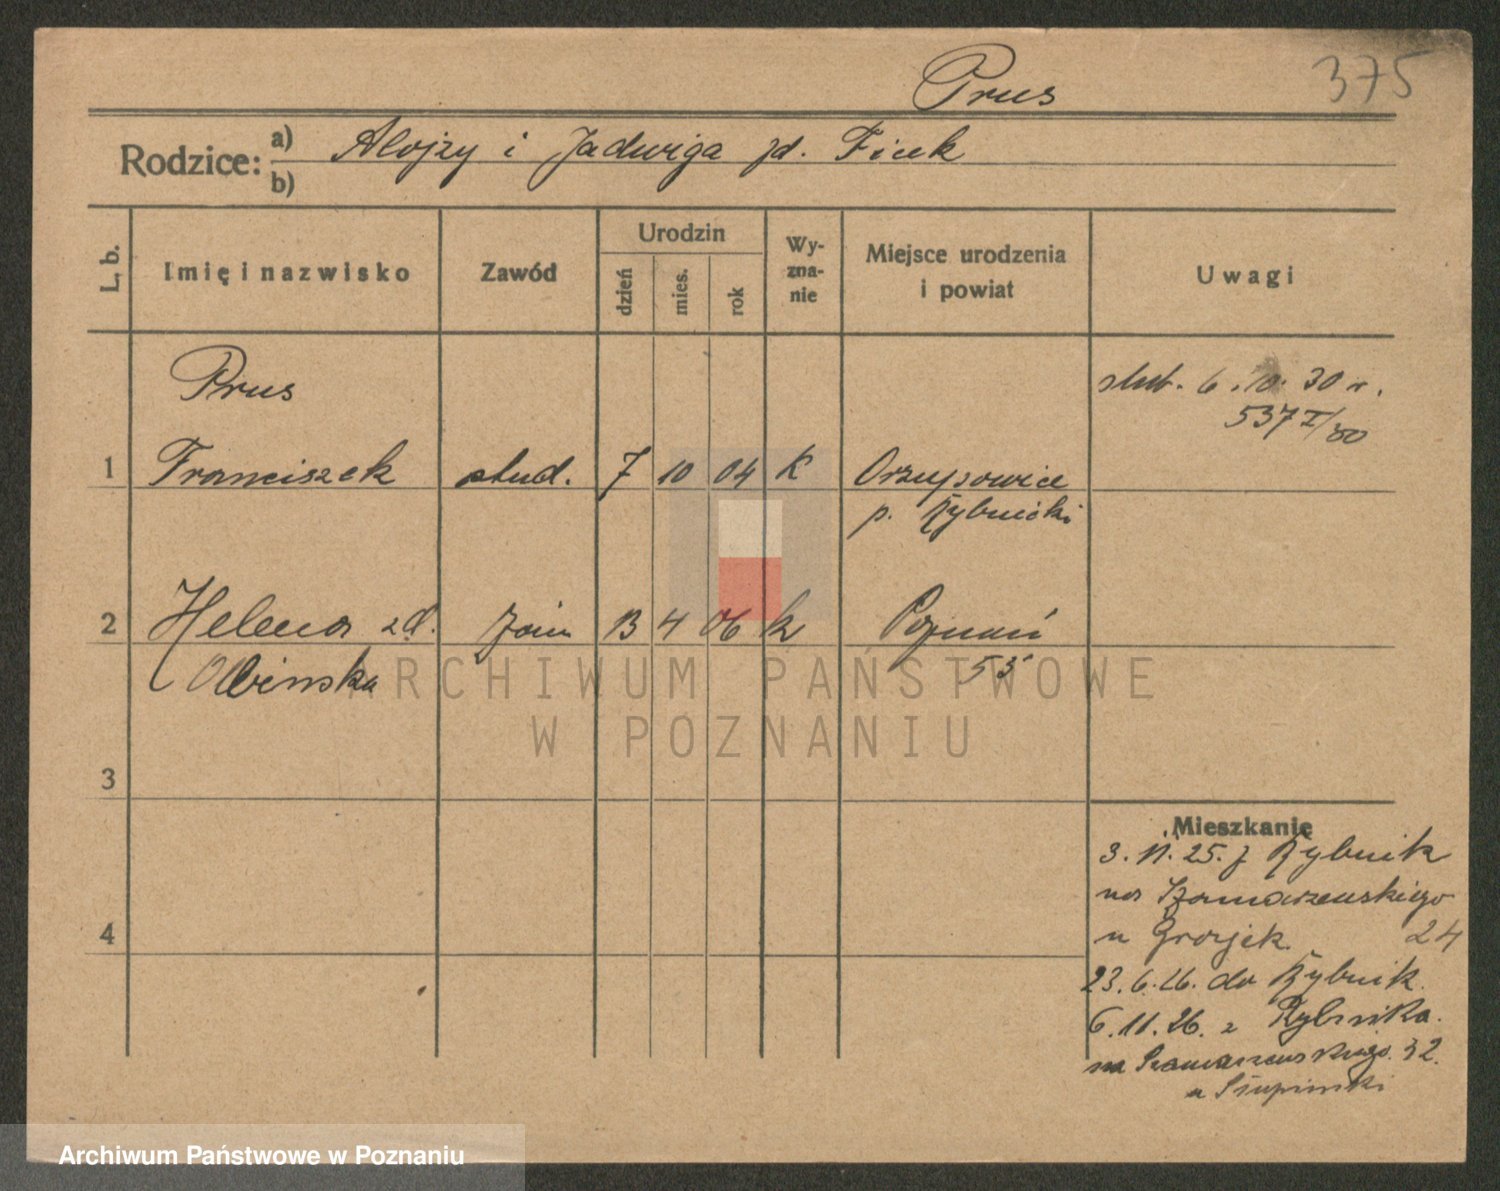 Prus
375
Rodzice: a) Alojzy i Jadwiga zd. Ficek
b)
L. b.
Imię i nazwisko
Zawód
Urodzin
dzień
mies.
rok
Wy-
zna-
nie
Miejsce urodzenia
i powiat
Uwagi
Prus
ślub. 6.10.30 r.
537 I/30
1 Franciszek stud. 7 10 04 K Orzupowice
p. Rybnicki
2 Helena zd. żona 13 4 06 k Poznań
55
ARCHIWUM PAŃSTWOWE
W POZNANIU
3
4
Mieszkanie
3.11.25. z Rybnik
na Szamarzewskiego
u 24
23.6.26. do Rybnik.
6.11.26. z Rybnika.
na Szamarzewskiego. 32.
u
Archiwum Państwowe w Poznaniu